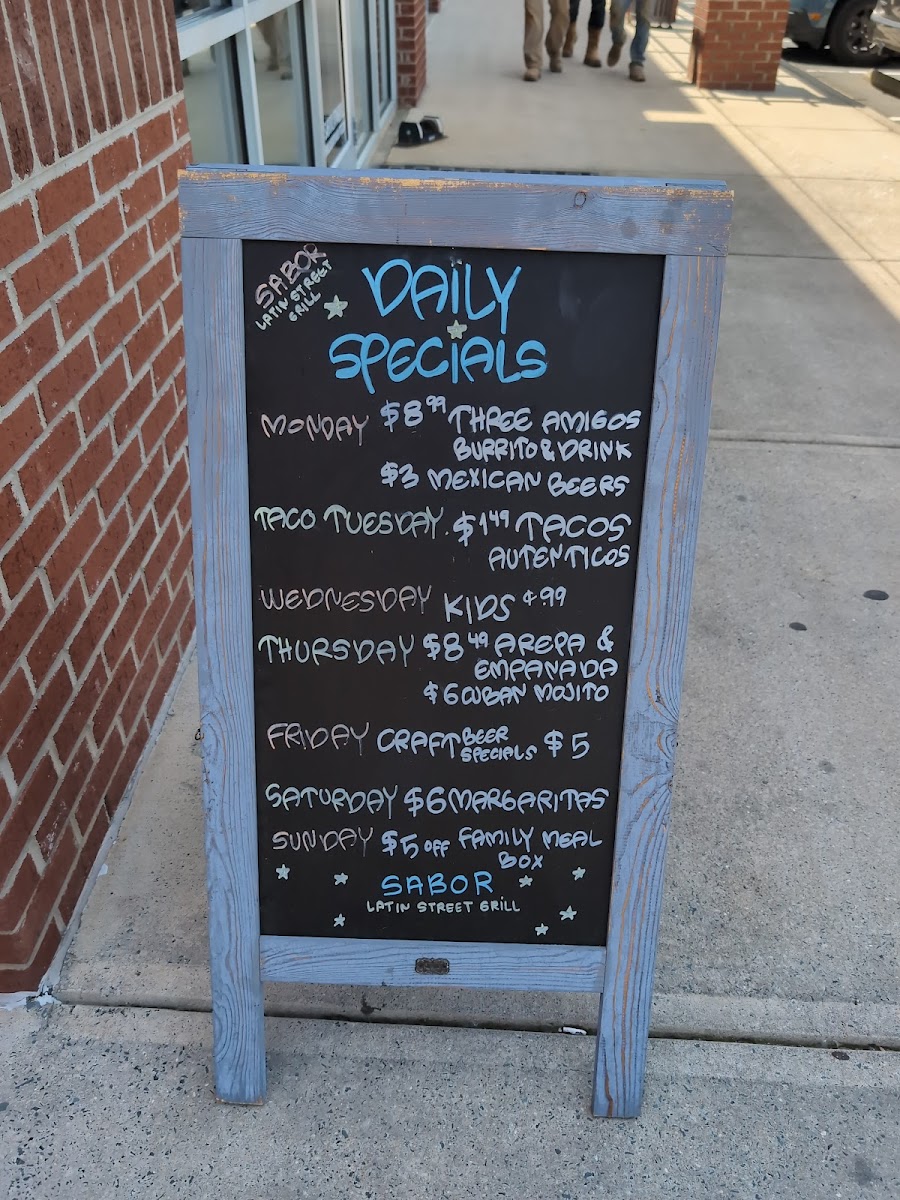 SABOR
LATIN STREET
GRILL
DAILY
SPECIALS
MONDAY $8.99 THREE AMIGOS
BURRITO & DRINK
$3 MEXICAN BEERS
TACO TUESDAY. $1.49 TACOS
AUTENTICOS
WEDNESDAY KIDS ¢.99
THURSDAY $8.49 AREPA &
EMPANADA
$6 CUBAN MOJITO
FRIDAY CRAFT BEER
SPECIALS $5
SATURDAY $6 MARGARITAS
SUNDAY $5 OFF FAMILY MEAL
BOX
SABOR
LATIN STREET GRILL